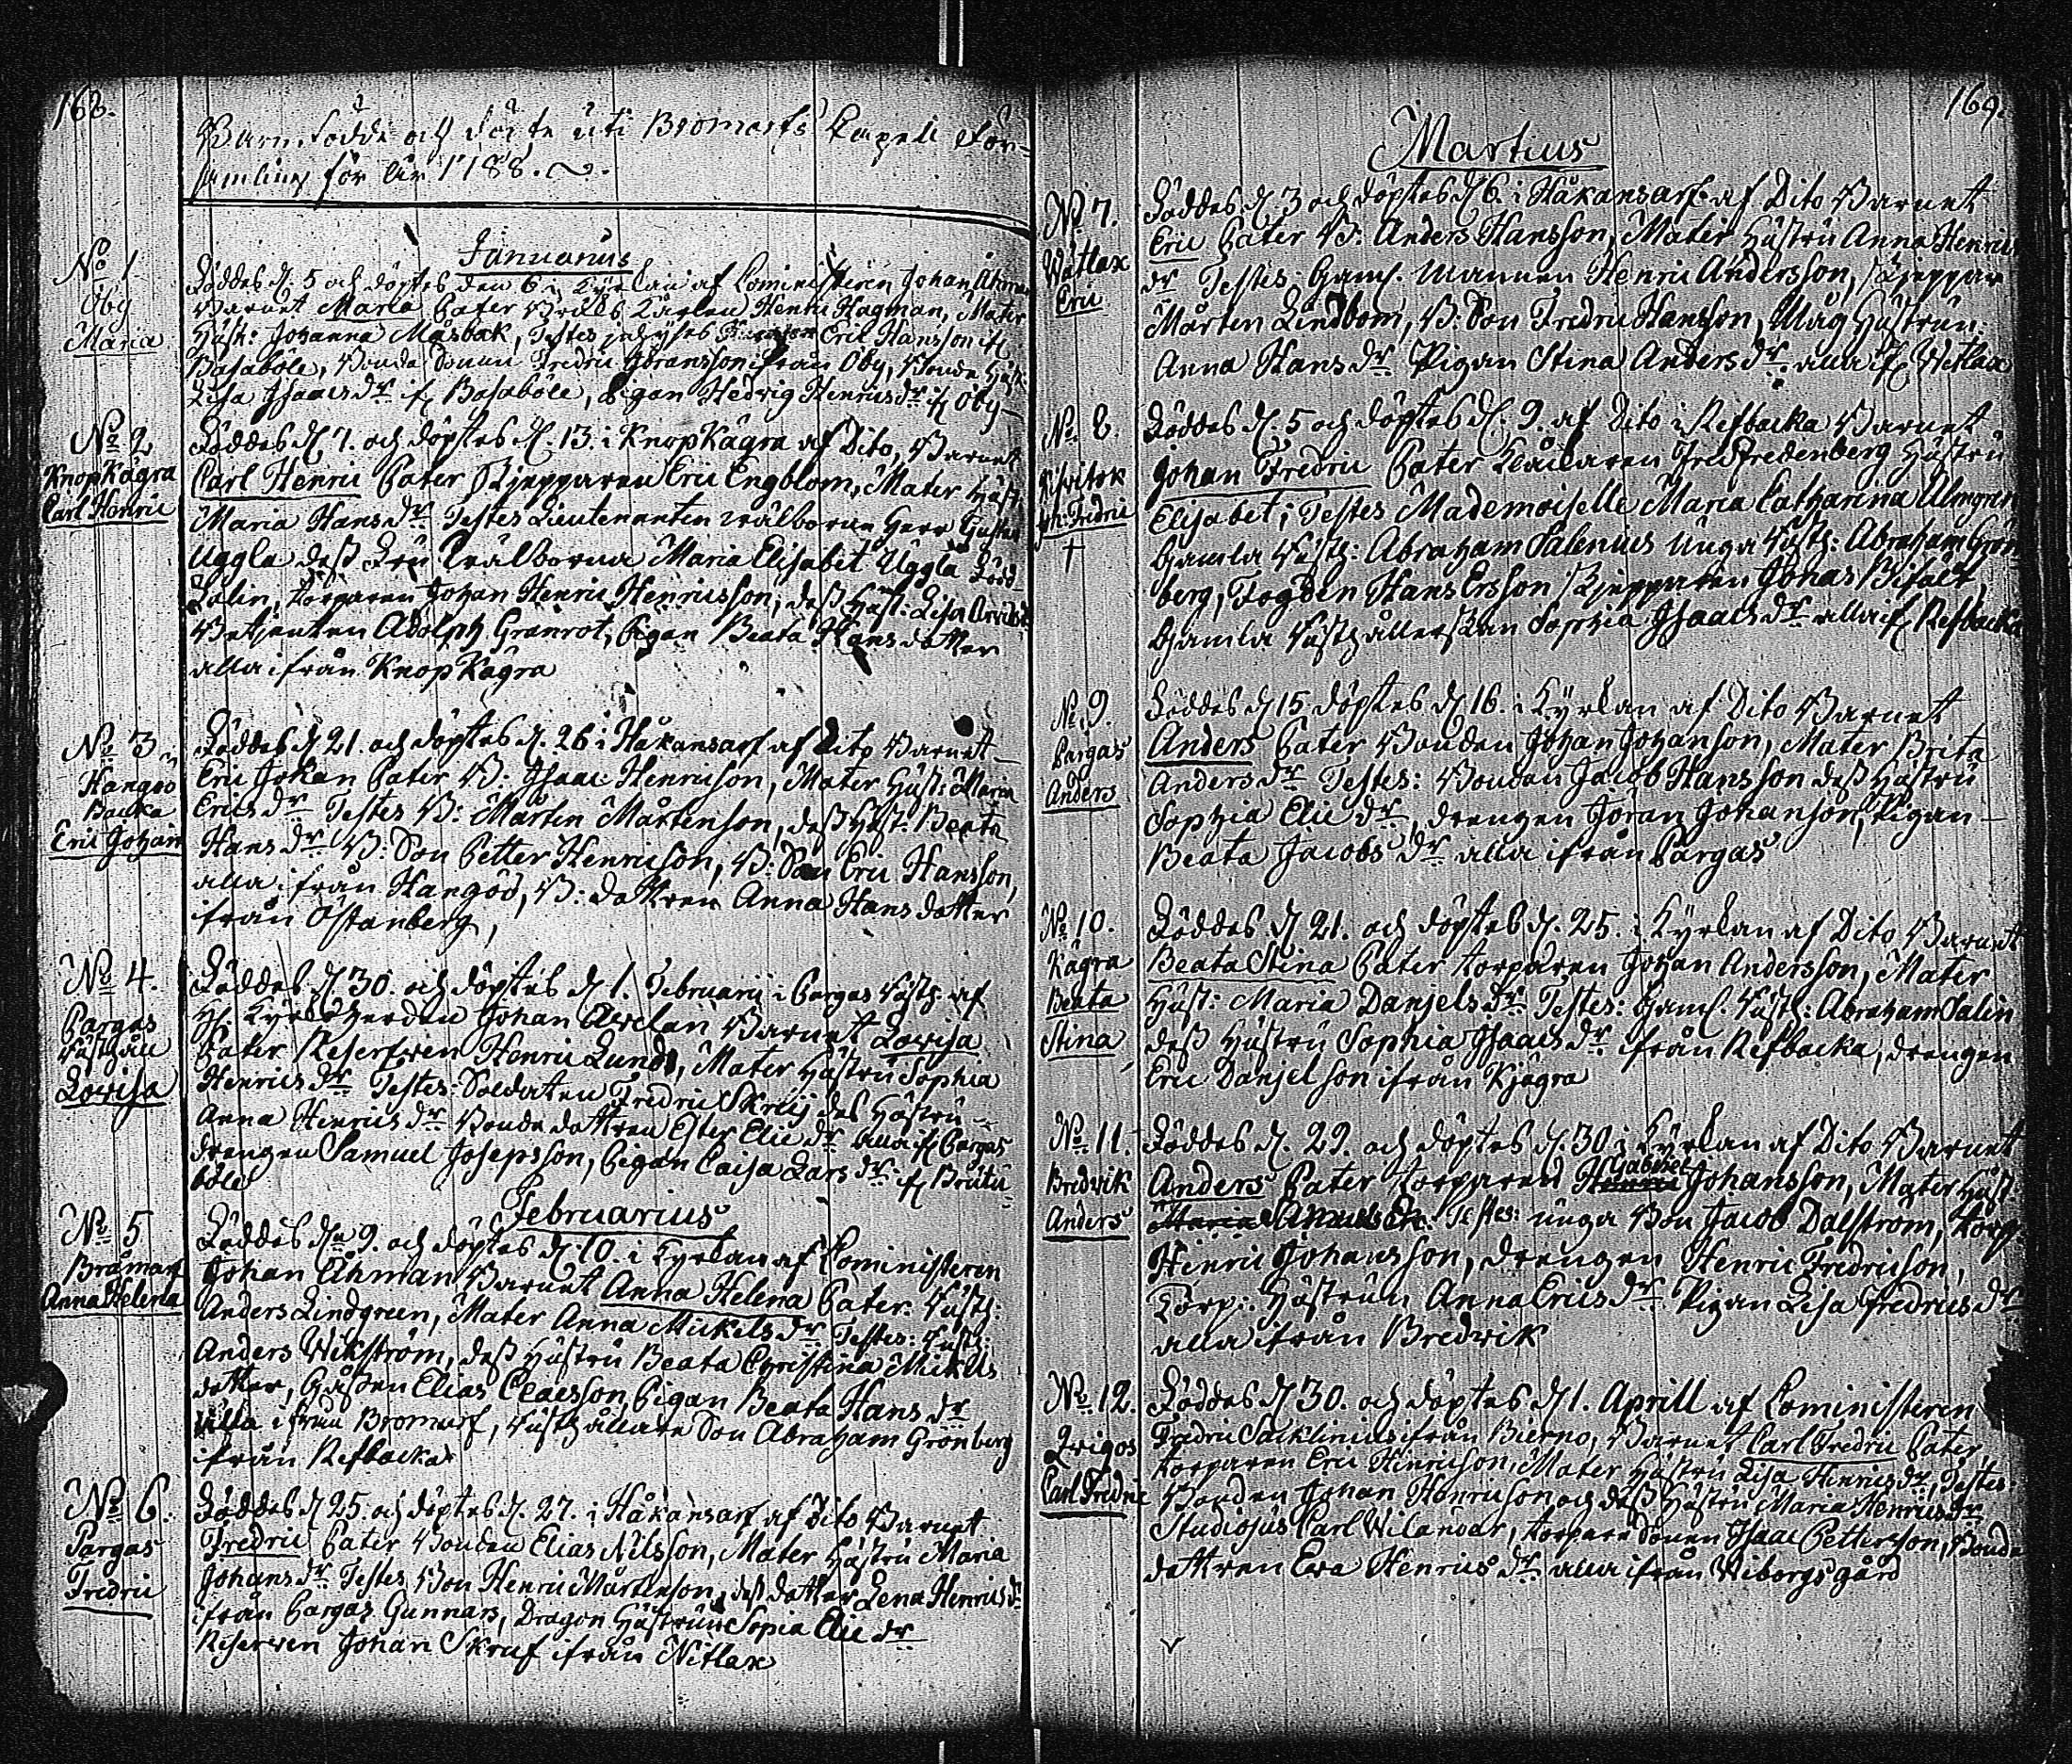 168.
Barn Födde och döpte uti Bromarfs Capell För-
samling för år 1788.
Januarius
No 1
Öby
Maria
Föddes d. 5 och döptes den 6 i Kyrkan af Cominsteren Johan Åhman
Barnet Maria Pater Henric Hagman, Mater
Hust: Johanna Masbak, Testes Eric Hansson if
Basaböle, Bonde Sonen Fredric Göransson ifrån Öby, Bonde Hust:
Lisa Isaacs dr if Basaböle, Pigan Hedvig Henrics dr if Öby
No 2
KnopKägra
Carl Henric
Föddes d. 7. och döptes d. 13. i KnopKägra af Dito, Barnet
Carl Henric Pater Skepparen Eric Engblom, Mater Hust:
Maria Hans dr Testes Lieutenanten wälborne Herr Gustav
Uggla dess Fru wälborna Maria Elisabet Uggla Född
Torparen Johan Henric Henricsson, dess Hust: Lisa
Betjenten Adolph Granrot, Pigan Beata Hans dotter
alla ifrån KnopKägra
No 3
Hangöö
Backa
Eric Johan
Föddes d. 21. och döptes d. 26 i Håkansarf af Dito Barnet
Eric Johan Pater B: Isaac Henricson, Mater Hust: Maria
Erics dr Testes B: Mårten Mårtenson, dess Hust. Beata
Hans dr B: Son Petter Henricson, B: Son Eric Hansson,
alla ifrån Hangöö, B: dottren Anna Hans dotter
ifrån Östanberg,
No 4.
Pargas
Lovisa
Föddes d. 30. och döptes d. 1. Februarii i Pargas af
H. Kyrkoherden Johan Barnet Lovisa
Pater Reserfven Henric Lund, Mater Hustru Sophia
Henrics dr Testes: Soldaten Fredric Skrif des Hustru
Anna Henrics dr Bonde dottren Ester Elie dr alla if Pargas
drengen Samuel Josepsson, Pigan Caisa Lars dr if Brutu-
böle
Februarius
No 5
Brämarf
Anna Helena
Föddes d. 9. och döptes d. 10. i Kyrkan af Cominsteren
Johan Åhman Barnet Anna Helena Pater:
Anders Lindgreen, Mater Anna Mickels dr Testes:
Anders Wikström, dess Hustru Beata Christina Mickels
dotter, Gossen Elias Claesson, Pigan Beata Hans dr
alla ifrån Bromarf, Son Abraham Grönberg
ifrån Refbacka
No 6.
Pargas
Fredric
Föddes d. 25. och döptes d. 27. i Håkansarf af Dito Barnet
Fredric Pater Bonden Elias Nilsson, Mater Hustru Maria
Johans dr Testes Bon Henric Mårtenson, des dotter Lena Henrics dr
ifrån Pargas Gunnars, Dragon Hustrun Sopia Elie dr
Reserven Johan Skruf ifrån Nitlax
169.
Martius
No 7.
Wätlax
Eric
Föddes d. 3 och döptes d. 6. i Håkansarf af Dito Barnet
Eric Pater B: Anders Hansson, Mater Hustru Anna Henrics
dr Testes: Gaml. mannen Henric Andersson, Skeppar
Mårten Lindbom, B: Son Fredric Hansson, Måg Hustrun
Anna Hans dr Pigan Stina Anders dr alla if Wetlax
No 8.
Joh: Fredric
†
Föddes d. 5 och döptes d. 9. af Dito i Refbacka Barnet
Johan Fredric Pater Fredenberg Hustru
Elisabet; Testes Mademoiselle Maria Catharina Almgren
Gamla Abraham Salenius Unga Abraham Grön-
berg, Fogden Hans Ersson Skepparen Jonas
Gamla Sophia Isaacs dr alla if Refbacka
No 9.
Pargas
Anders
Föddes d. 15 döptes d. 16. i Kyrkan af Dito Barnet
Anders Pater Bonden Johan Johanson, Mater Brita
Anders dr Testes: Bonden Jacob Hansson dess Hustru
Sophia Elie dr, drengen Jöran Johanson, Pigan
Beata Jacobs dr alla ifrån Pargas
No 10.
Kägra
Beata
Stina
Föddes d. 21. och döptes d. 25. i Kyrkan af Dito Barnet
Beata Stina Pater torparen Johan Andersson, Mater
Hust: Maria Danjels dr Testes: Gaml. Abraham Salin
dess Hustru Sophia Isaacs dr ifrån Refbacka, drengen
Eric Danjelson ifrån Kjägra
No 11.
Bredvik
Anders
Föddes d. 29. och döptes d. 30 i Kyrkan af Dito Barnet
Anders Pater torparen Gabriel Johansson, Mater Hust:
Testes: unga Bon Jacob Dalström, torp:
Henric Johansson, drengen Henric Fredricson,
Torp: Hustrun Anna Erics dr Pigan Lisa Fredrics dr
alla ifrån Bredvik
No 12.
Carl Fredric
Föddes d. 30. och döptes d. 1. Aprill af Cominsteren
Fredric Sacklinius ifrån Bierno, Barnet Carl Fredric Pater
torparen Eric Hinricson, Mater Hustru Lisa Hinrics dr, Testes
Bonden Johan Henricson och dess Hustru Maria Henrics dr
Studiosus Carl Wilander, torpare Sonen Isaac Pettersson, Bonde
dottren Eva Henrics dr alla ifrån Wiborgs gård